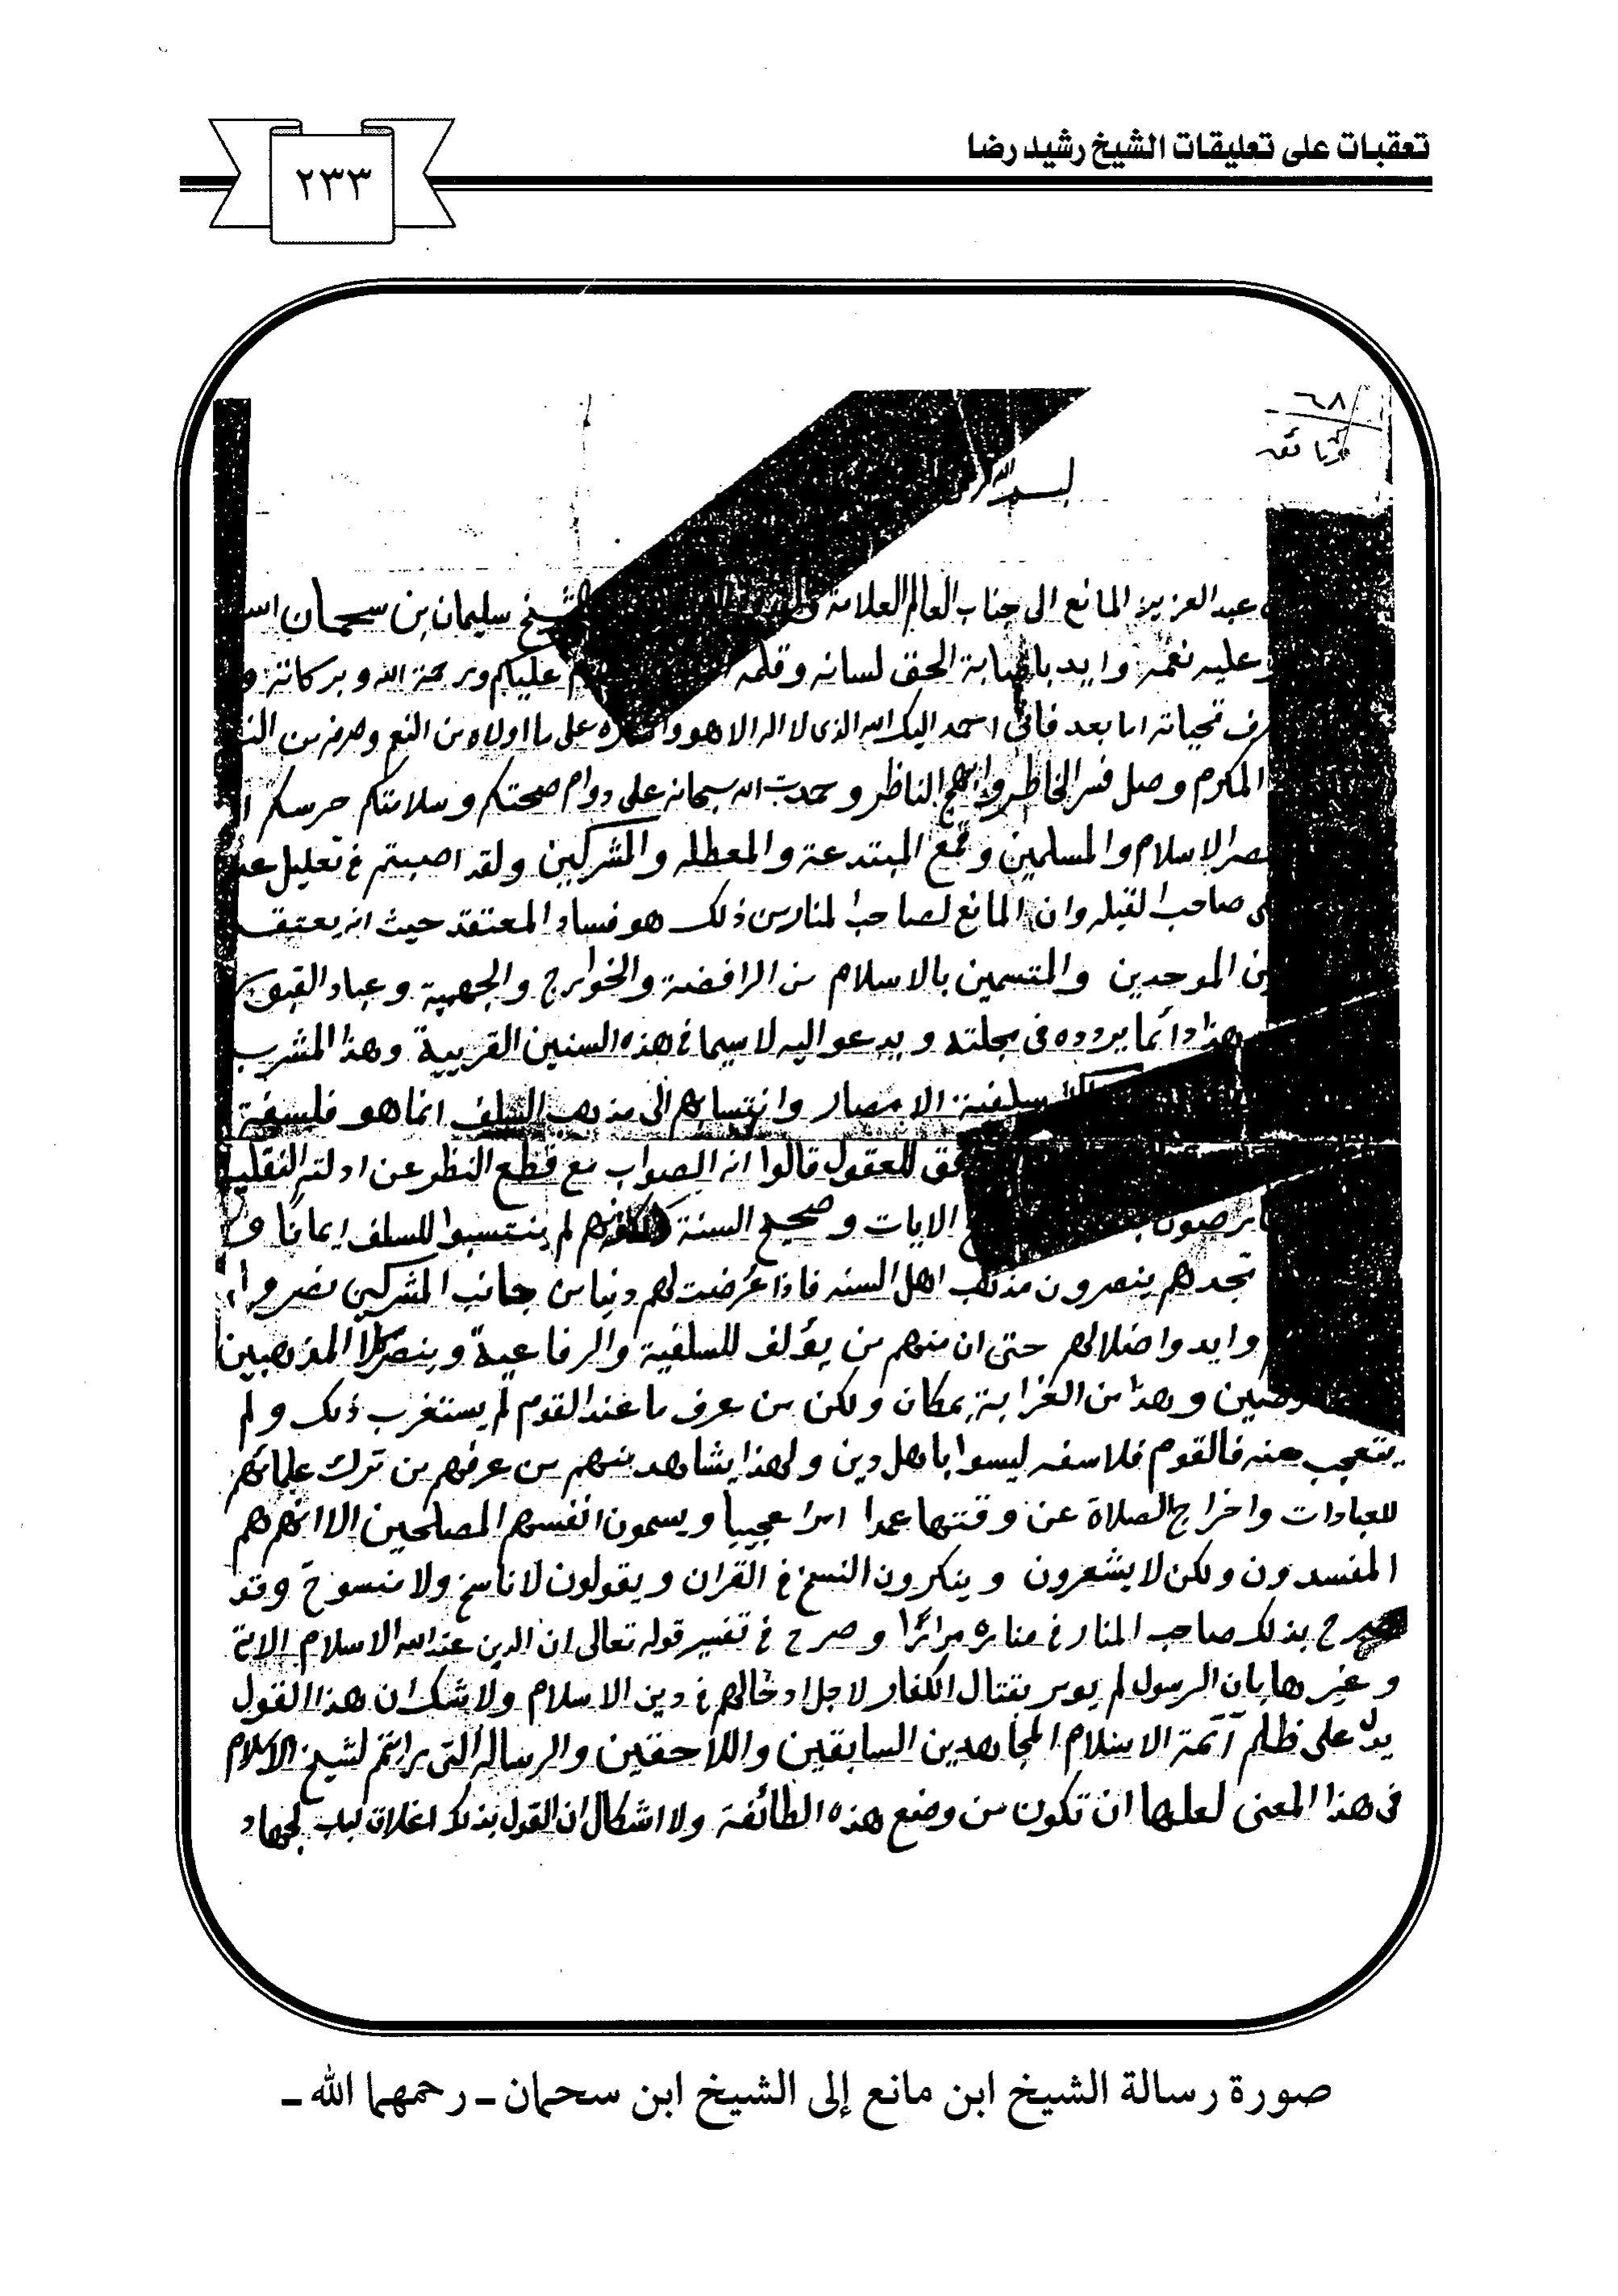 تعقبات على تعليقات الشيخ رشيد رضا
٢٣٣
٦٨
عبد العزيز المانع الى جناب العالم العلامة الشيخ سليمان بن سحمان اس
وعليه نعمه وايد باصابة الحق لسانه وقلمه عليكم ورحمة الله وبركاته
تحياته اما بعد فانى احمد اليك الله الذى لا اله الا هو على ما اولاه من النعم وصرفه من
المكرم وصل فسر الخاطر وابهج الناظر وحمدت الله سبحانه على دوام صحتكم وسلامتكم حرسكم
الاسلام والمسلمين وقمع المبتدعة والمعطله والمشركين ولقد اصبتم فى تعليل
صاحب القيله وان المانع لصاحب المنار من ذلك هو فساد المعتقد حيث انه يعتقد
الموحدين والمتسمين بالاسلام من الرافضة والخوارج والجهمية وعباد القبور
هذا دائما يردده فى مجلته ويدعو اليه لا سيما فى هذه السنين القريبة وهذا المشرب
سلفية الامصار وانتسابهم الى مذهب السلف انما هو فلسفة
للعقول قالوا انه الصواب مع قطع النظر عن ادلته النقليه
الايات وصحيح السنة لم ينتسبوا للسلف ايمانا
تجدهم ينصرون مذهب اهل السنه فاذا عرضت لهم دنيا من جانب المشركين نصروا
وايدوا ضلالهم حتى ان منهم من يؤلف للسلفية والرفاعية وينصر كلا المذهبين
وهذا من الغرابة بمكان ولكن من عرف ما عند القوم لم يستغرب ذلك ولم
يتعجب منه فالقوم فلاسفه ليسوا باهل دين ولهذا يشاهد منهم من عرفهم من ترك علمائهم
للعبادات واخراج الصلاة عن وقتها عمدا امرا عجيبا ويسمون انفسهم المصلحين الا انهم هم
المفسدون ولكن لا يشعرون وينكرون النسخ فى القران ويقولون لا ناسخ ولا منسوخ وقد
صرح بذلك صاحب المنار فى مناره مرارًا وصرح فى تفسير قوله تعالى ان الدين عند الله الاسلام الاية
وغيرها بان الرسول لم يومر بقتال الكفار لاجل ادخالهم فى دين الاسلام ولا شك ان هذا القول
يدل على ظلم أئمة الاسلام المجاهدين السابقين واللاحقين والرسالة التى لشيخ الاسلام
فى هذا المعنى لعلها ان تكون من وضع هذه الطائفة ولا اشكال ان القول بذلك اغلاق لباب الجهاد
صورة رسالة الشيخ ابن مانع إلى الشيخ ابن سحمان ـ رحمهما الله ـ